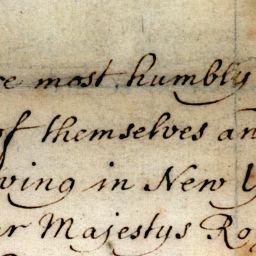 re most humbly
of themselves an
ving in New Y
r Majestys Ro